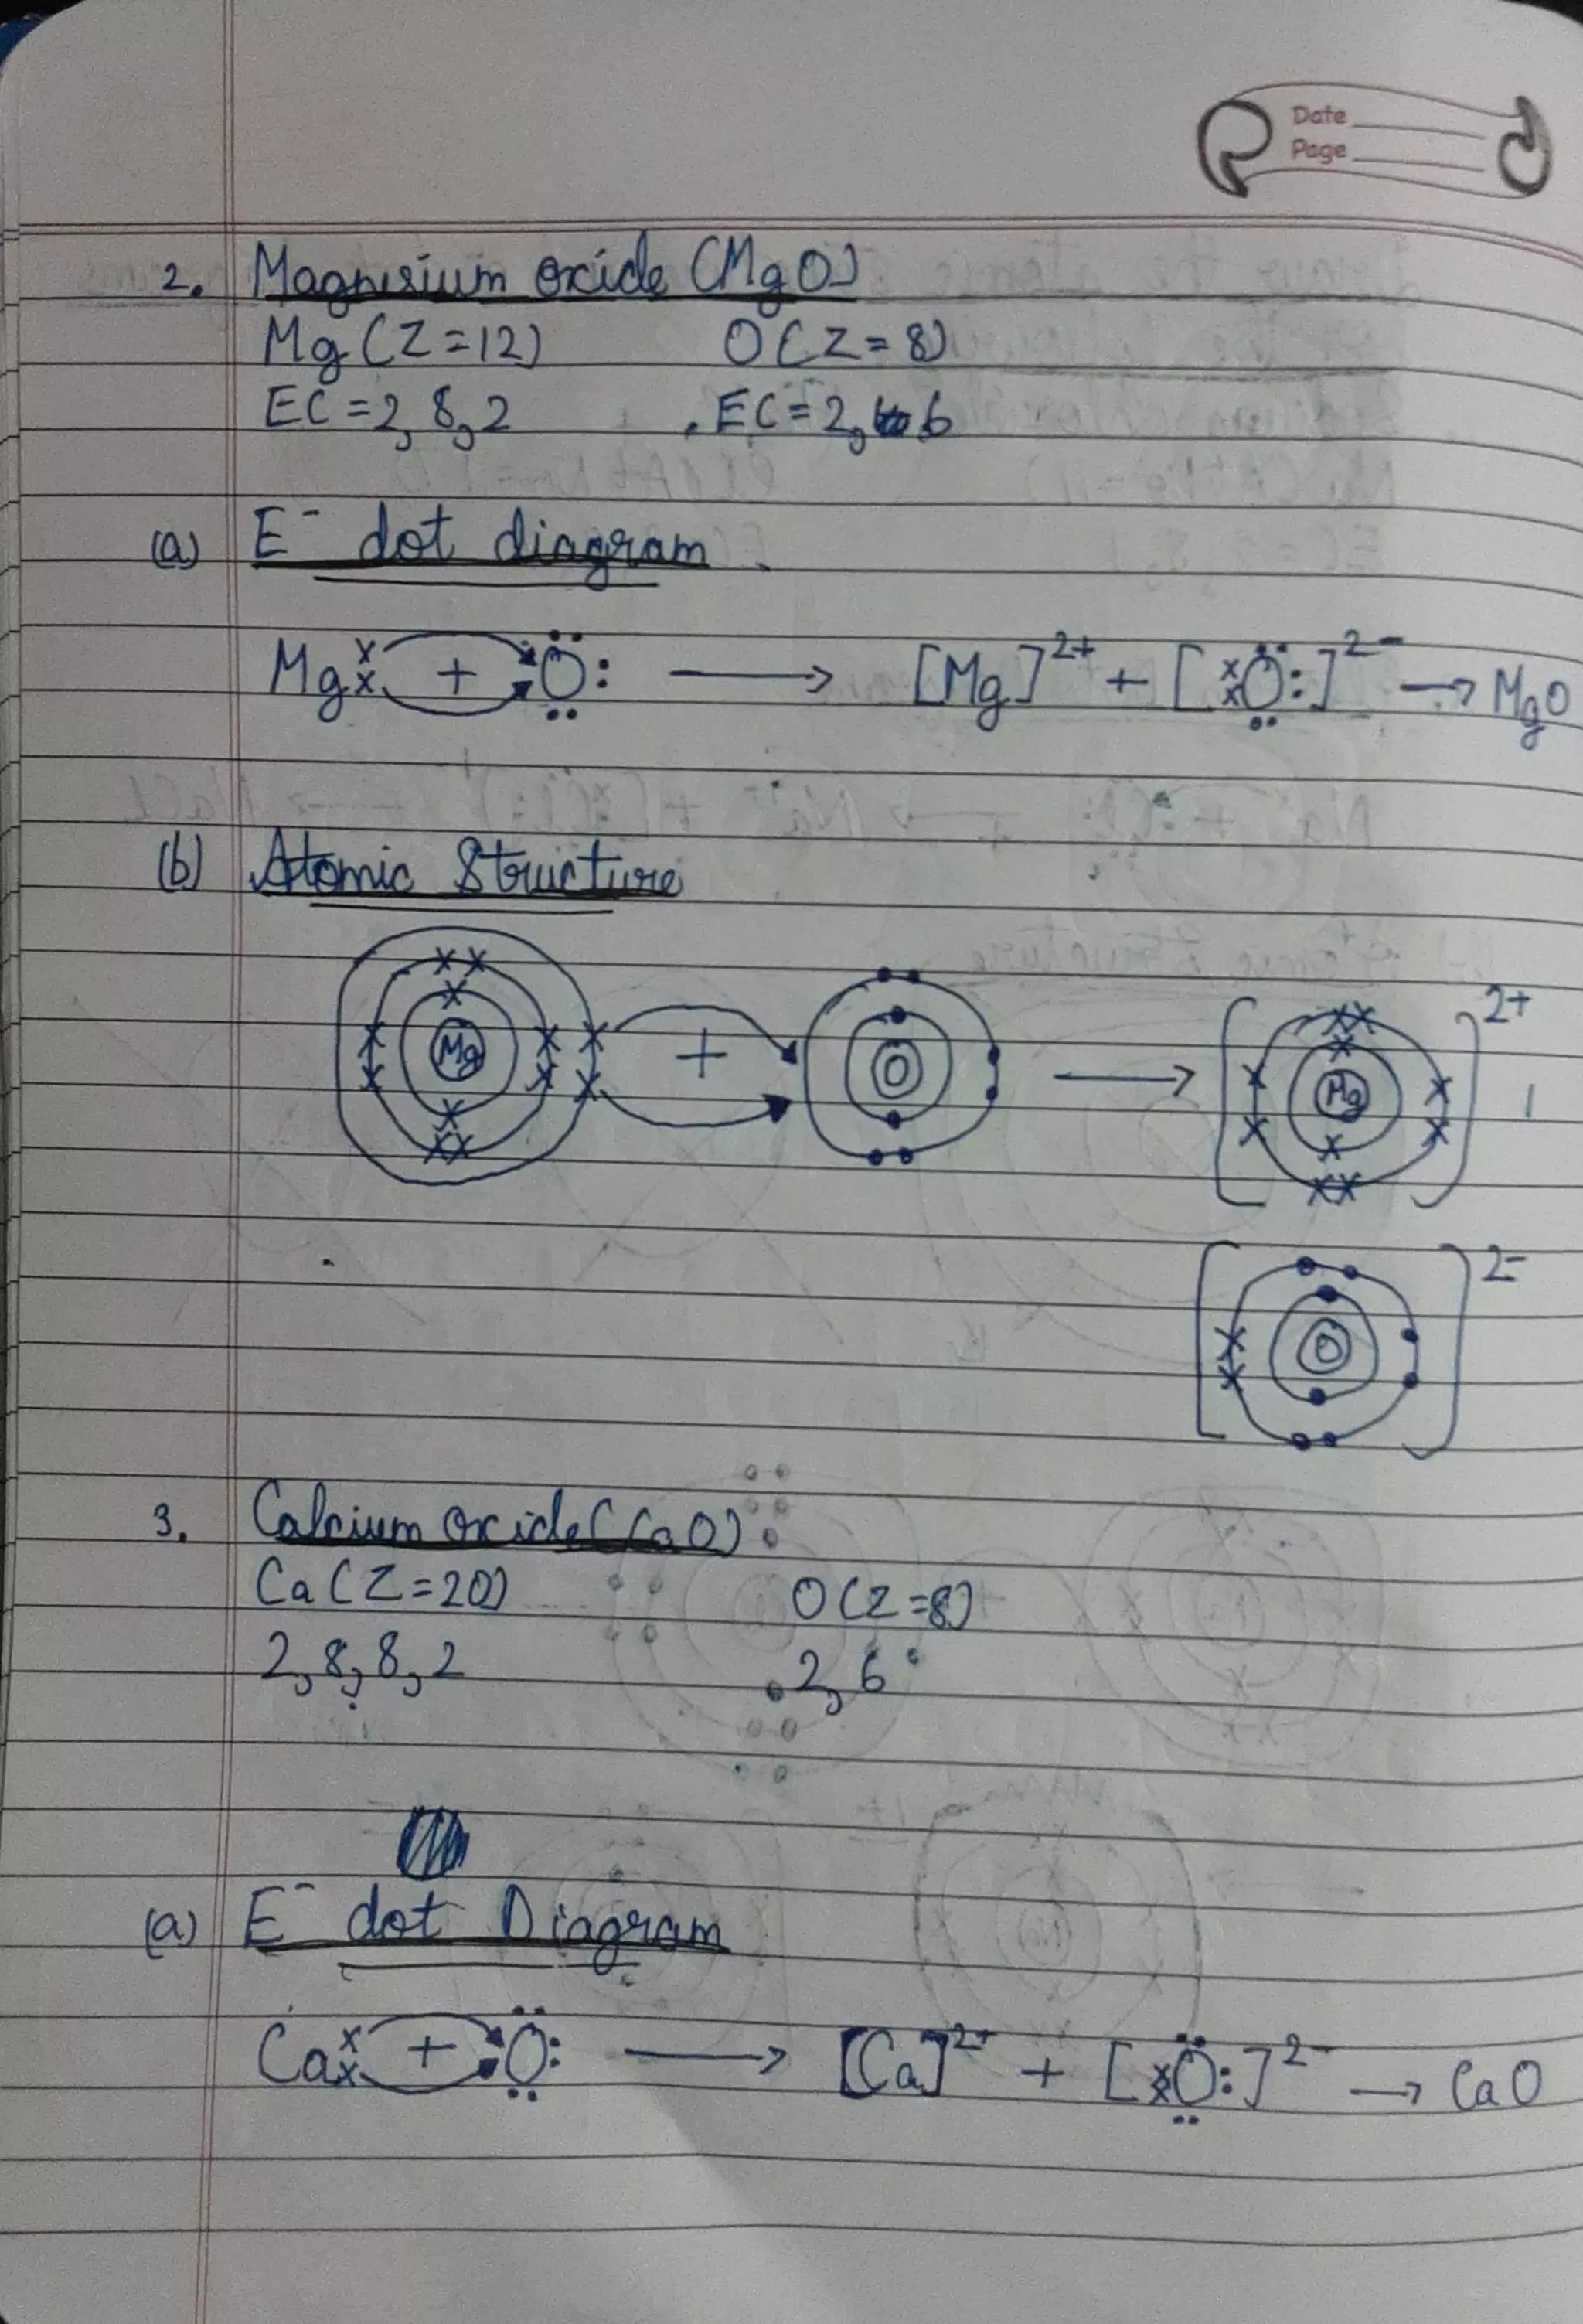 Date
Page
2. Magnesium oxide (MgO)
Mg (Z=12) O (Z=8)
EC = 2, 8, 2 EC = 2, 6
(a) E⁻ dot diagram
Mg xx + :Ö: → [Mg]²⁺ + [xxÖ:]²⁻ → MgO
(b) Atomic Structure
Mg + O → [Mg]²⁺
[O]²⁻
3. Calcium oxide (CaO)
Ca (Z=20) O (Z=8)
2, 8, 8, 2 2, 6
(a) E⁻ dot Diagram
Ca xx + Ö: → [Ca]²⁺ + [xxÖ:]²⁻ → CaO